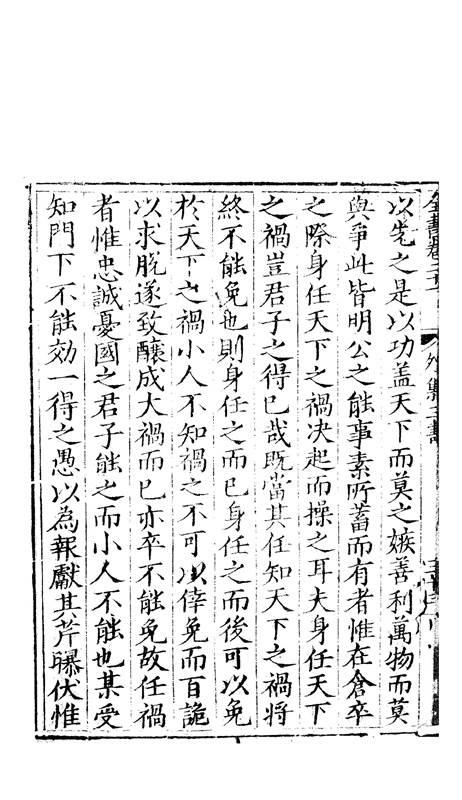 以先之是以功盖天下而莫之嫉善利萬物而莫
與爭此皆明公之能事素所蓄而有者惟在倉卒
之際身任天下之禍决起而操之耳夫身任天下
之禍豈君子之得已哉既當其任知天下之禍將
終不能免也則身任之而已身任之而後可以免
於天下之禍小人不知禍之不可以倖免而百詭
以求脫遂致釀成大禍而已亦卒不能免故任禍
者惟忠誠憂國之君子能之而小人不能也某受
知門下不能効一得之愚以為報獻其芹曝伏惟